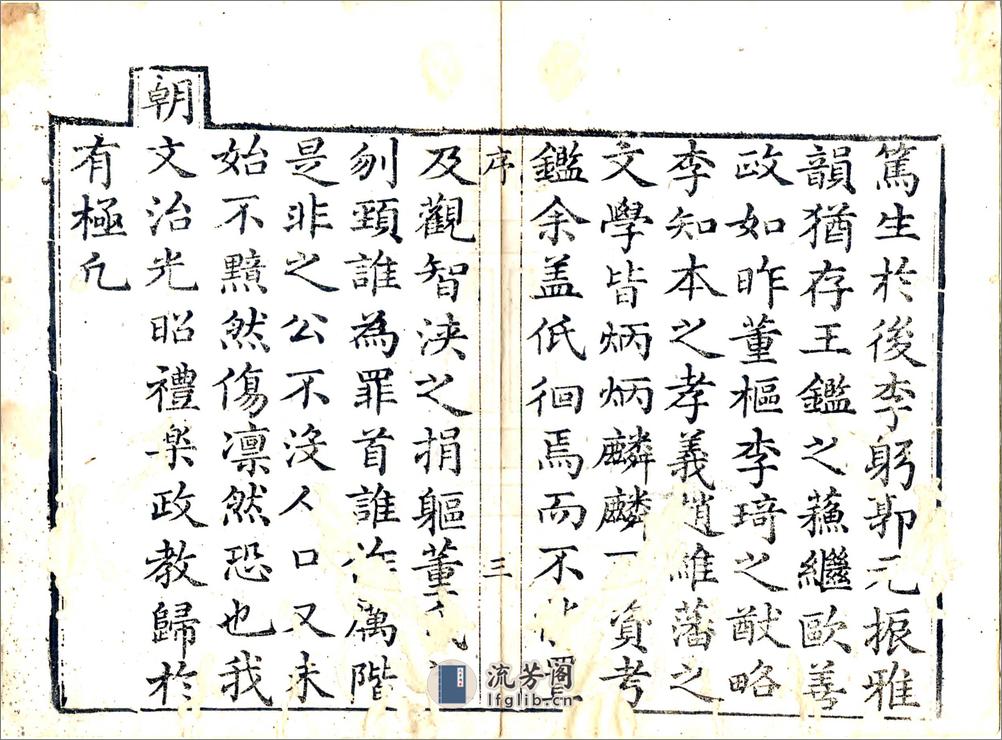 篤生於後李躬郭元振雅
韻猶存王鑑之蘓繼歐善
政如昨董樞李琦之猷略
李知本之孝義趙維藩之
文學皆炳炳麟麟資考
鑑余盖低徊焉而不
序
三
及觀智浹之捐軀董
刎頸誰為罪首誰作厲階
是非之公不没人口又未
始不黯然傷凛然恐也我
朝
文治光昭禮楽政教歸於
有極凢
流芳閣
lfglib.cn